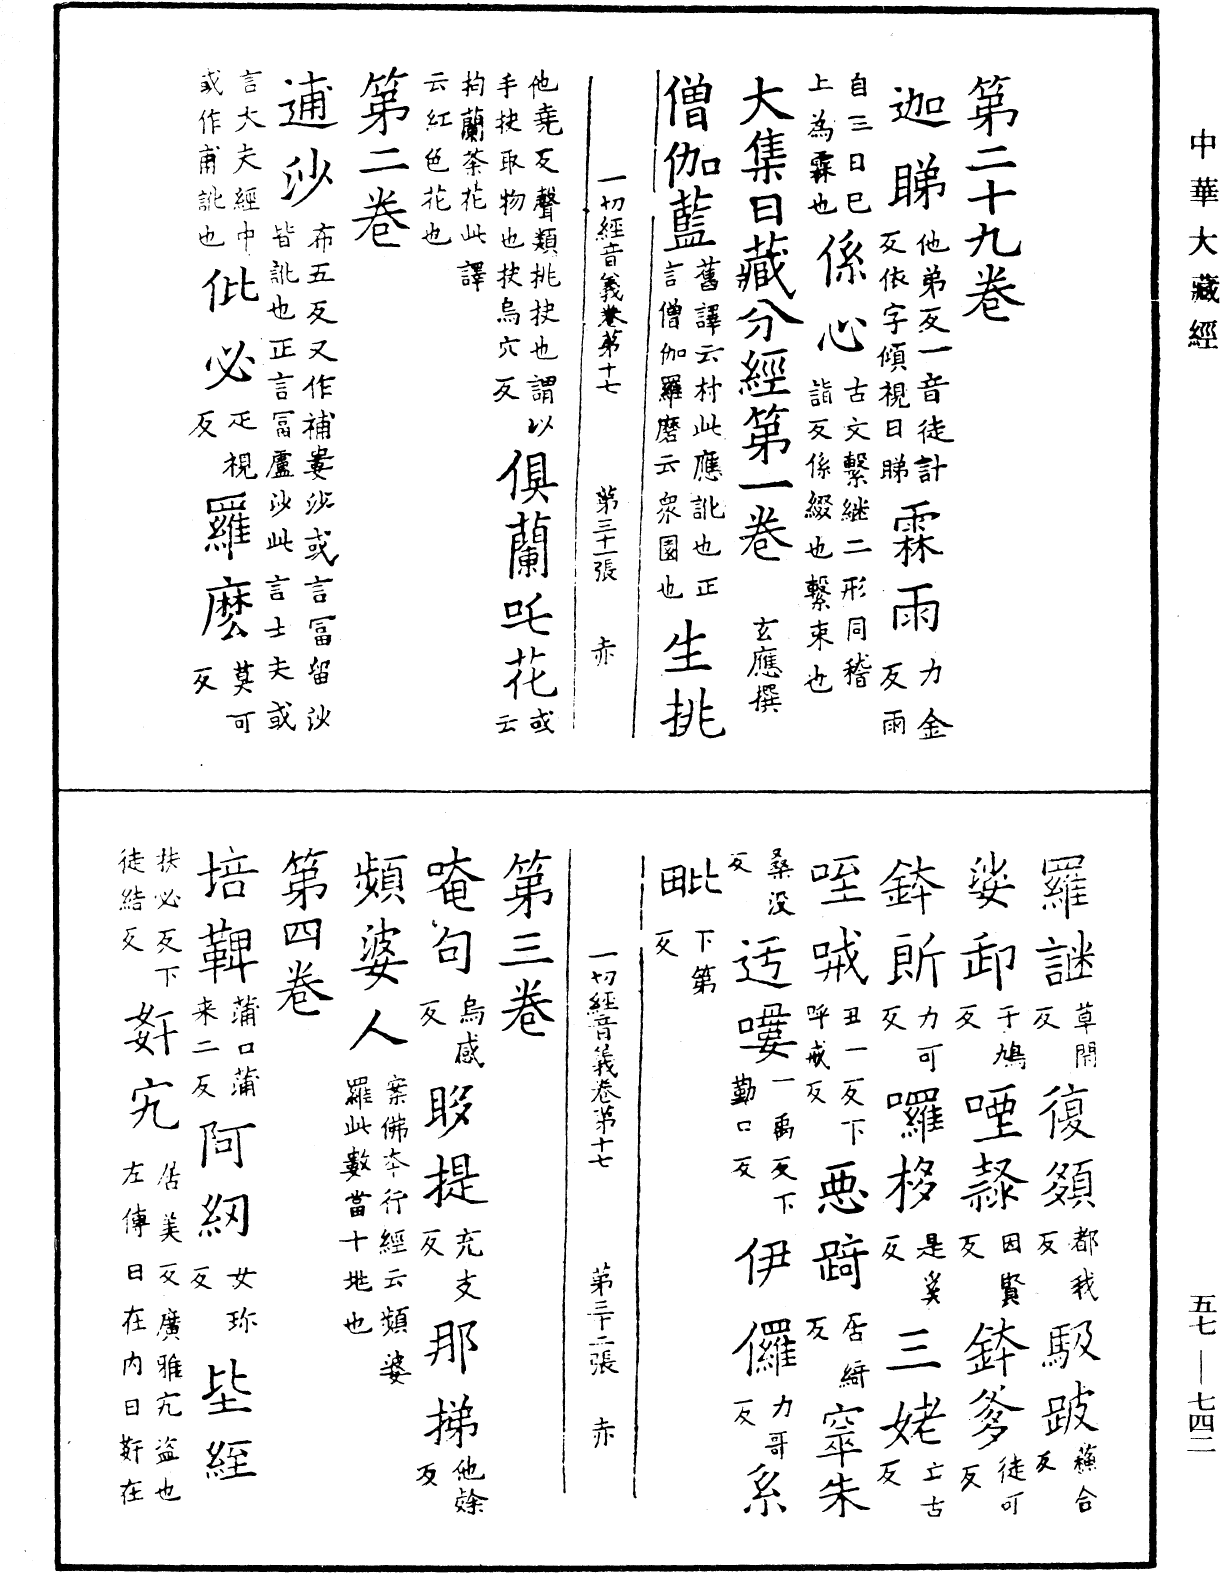 中華大藏經
第二十九卷
迦睇 他弟反一音徒計反依字傾視曰睇 霖雨 力金反雨
自三日已上為霖也 係心 古文繫継二形同稽詣反係綴也繫束也
大集日藏分經第一卷 玄應撰
僧伽藍 舊譯云村此應訛也正言僧伽羅磨云衆園也 生挑
一切經音義卷第十七 第三十一張 赤
他堯反聲類挑抉也謂以手抉取物也抉烏穴反 俱蘭吒花 或云
拘蘭荼花此譯云紅色花也
第二卷
逋沙 布五反又作補婁沙或言冨留沙皆訛也正言冨盧沙此言士夫或
言大夫經中或作甫訛也 仳必 疋視反 羅麽 莫可反
羅謎 草閇反 復頞 都我反 馺跛 蘓合反
娑卸 于鳩反 堙隸 因賢反 鉢爹 徒可反
鉢斫 力可反 囉栘 是奚反 三姥 亡古反
咥㖪 丑一反下呼戒反 惡踦 居綺反 窣朱
桒没反 迃㗕 一禹反下勤口反 伊儸 力哥反 系
毗 下第反
一切經音義卷第十七 第三十二張 赤
第三卷
唵句 烏感反 眵提 充支反 那挮 他嵠反
頻婆人 案佛夲行經云頻婆羅此數當十地也
第四卷
培鞞 蒲口蒲来二反 阿紉 女珎反 坒絰
扶必反下徒結反 姧宄 居美反廣雅宄盜也左傳曰在内曰姧在
五七—七四二